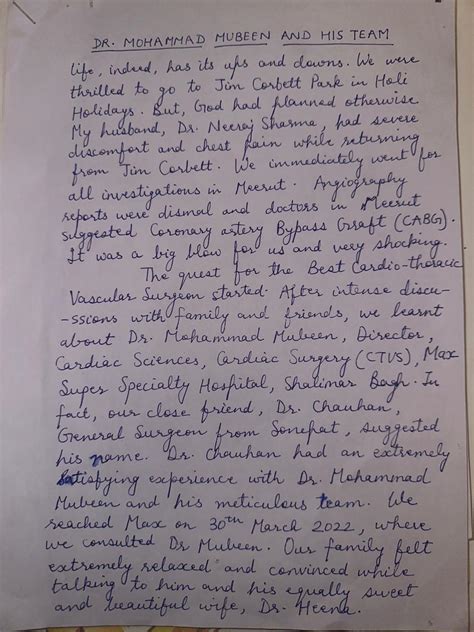 DR. MOHAMMAD MUBEEN AND HIS TEAM
life, indeed, has its ups and downs. We were
thrilled to go to Jim Corbett Park in Holi
Holidays. But, God had planned otherwise
My husband, Dr. Neeraj Sharma, had severe
discomfort and chest pain while returning
from Jim Corbett. We immediately went for
all investigations in Meerut. Angiography
reports were dismal and doctors in Meerut
suggested Coronary artery Bypass Graft (CABG).
It was a big blow for us and very shocking.
The quest for the Best Cardio-thoracic
Vascular Surgeon started. After intense discu-
-ssions with family and friends, we learnt
about Dr. Mohammad Mubeen, Director,
Cardiac Sciences, Cardiac Surgery (CTVS), Max
Super Specialty Hospital, Shalimar Bagh. In
fact, our close friend, Dr. Chauhan,
General Surgeon from Sonepat, suggested
his name. Dr. Chauhan had an extremely
Satisfying experience with Dr. Mohammad
Mubeen and his meticulous team. We
reached Max on 30th March 2022, where
we consulted Dr Mubeen. Our family felt
extremely relaxed and convinced while
talking to him and his equally sweet
and beautiful wife, Dr. Heena.